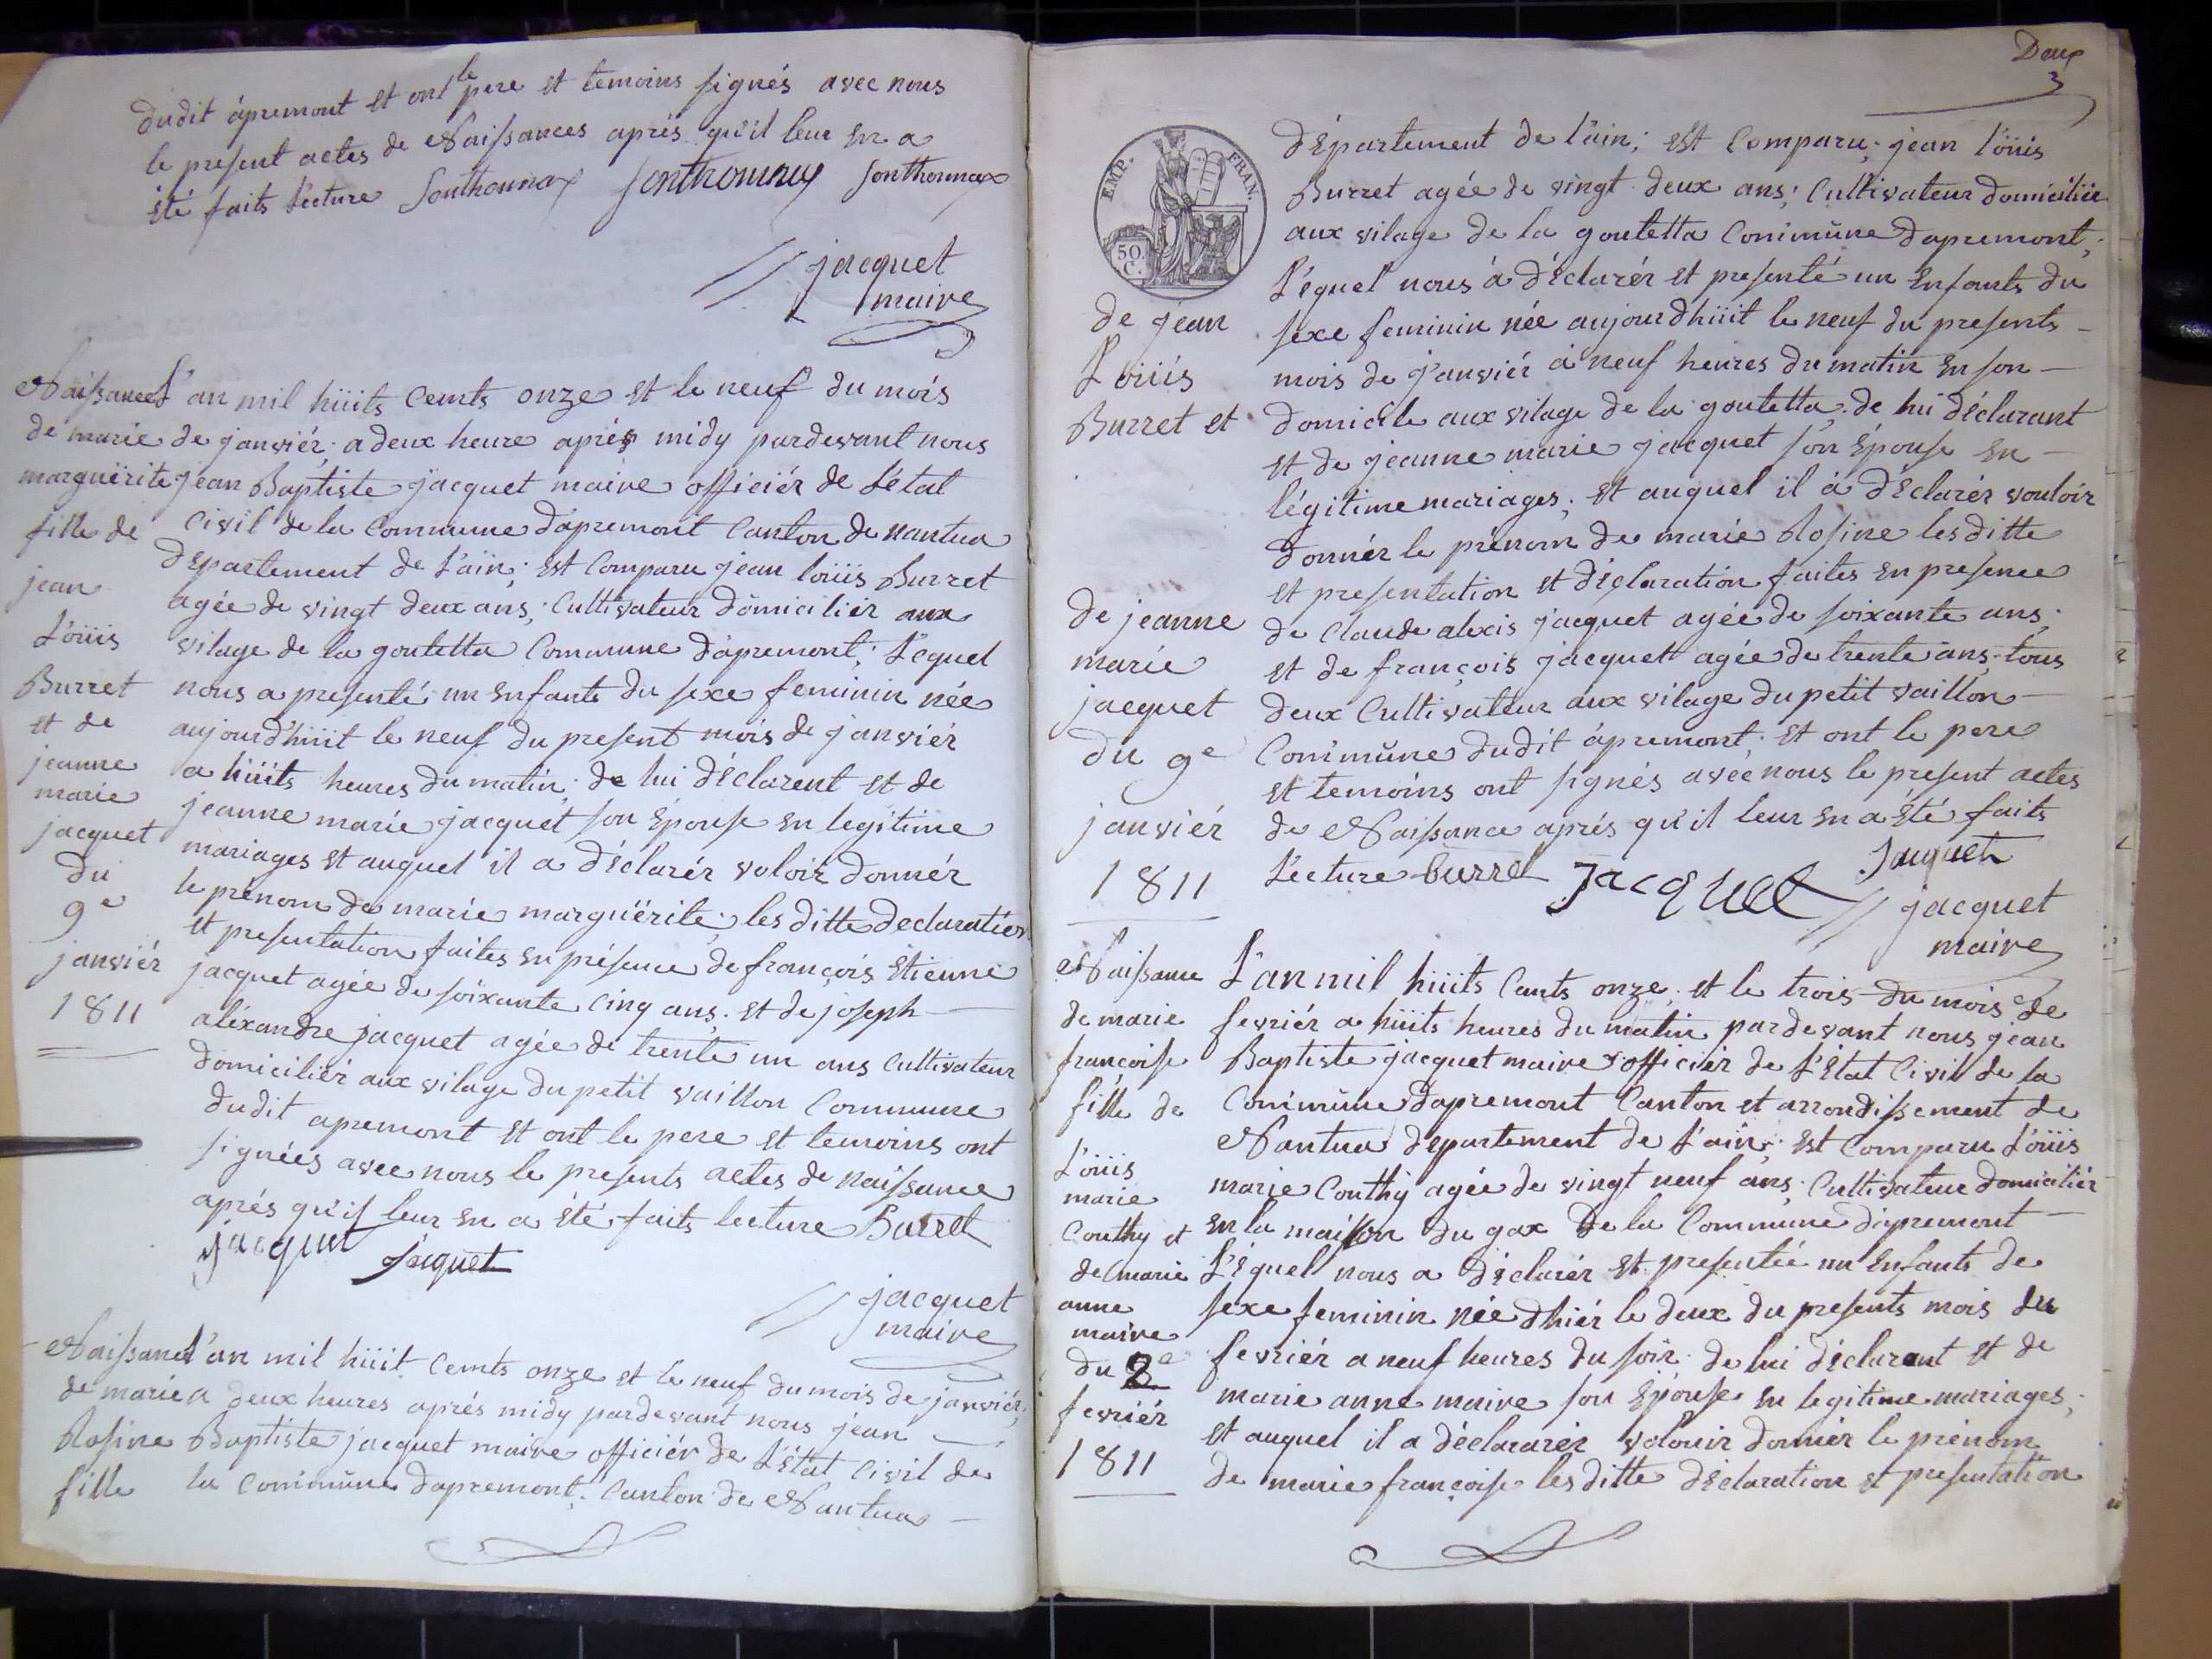 dudit ápremont et ont le pere et temoins signés avec nous
le present actes de Naissances aprés qu'il leur en a
été faits Lecture Sonthonnax Sonthonnax Sonthonnax
jacquet
maire
Naissance
de marie
marguërite
fille de
jean
Loüis
Burret
et de
jeanne
marie
jacquet
du
9e
janviér
1811
L'an mil hüits Cemts onze et le neuf du mois
de janviér; a deux heure aprés midy pardevant nous
jean Baptiste jacquet maire officiér de L'état
Civil de la Commune dápremont Canton de nantua
département de L'ain; est Comparu jean loüis Burret
agée de vingt deux ans; Cultivateur domiciliér aux
vilage de la goutetta Commune dápremont; Léquel
nous a presenté un enfants du sexe feminin née
aujourd'hüit le neuf du present mois de janviér
a hüits heures du matin; de lui déclarent et de
jeanne marie jacquet son épouse en legitime
mariages et auquel il a déclarér voloir donnér
le prénom de marie marguërite; les ditte declaration
et presentation faites en présence de françois Etienne
jacquet agée de soixante cinq ans. et de joseph
aléxandre jacquet agée de trente un ans Cultivateur
domiciliér aux vilage du petit vaillon Commune
dudit apremont et ont le pere et temoins ont
signées avec nous le presents actes de naissance
aprés qu'il leur en a été faits lecture Burret
jacquet Jacquet
jacquet
maire
Naissance
de marie
Rosine
fille
L'an mil hüit Cemts onze et le neuf du mois de janviér;
a deux heures aprés midy pardevant nous jean
Baptiste jacquet maire officiér de L'état Civil de
la Commŭne dapremont; Canton de Nantua
Deux
EMP. FRAN.
50 C.
de jean
Loüis
Burret et
de jeanne
marie
jacquet
du 9e
janviér
1811
département de l'ain; est Comparu; jean loüis
Burret agée de vingt deux ans; Cultivateur domiciliée
aux vilage de la goutetta Commŭne dapremont;
Léquel nous á déclarér et presenté un enfants du
sexe feminin née aujourdhüit le neuf du presents
mois de janviér á neuf heures du matin en son
domicile aux vilage de la goutetta. de lui déclarant
et de jeanne marie jacquet son épouse en
légitime mariages; et auquel il á déclarér vouloir
donnér le prénom de marie Rosine les ditte
et presentation et déclaration faites en presence
de Claude alexis jacquet agée de soixante ans;
et de françois jacquet agée de trente ans; tous
deux Cultivateur aux vilage du petit vaillon
Commŭne dudit ápremont; et ont le pere
et temoins ont signés avec nous le present actes
de Naissance aprés qu'il leur en a été faits
Lecture burret jacquet Jauquet
jacquet
maire
Naissance
de marie
francoise
fille de
Loüis
marie
Couthy et
de marie
anne
maire
du 2e
fevriér
1811
L'an mil hüits Cents onze; et le trois du mois de
fevriér a hüits heures du matin pardevant nous jean
Baptiste jacquet maire officiér de L'état Civil de la
Commŭne dapremont Canton et arrondissement de
Nantua département de L'ain; est Comparu Loüis
marie Couthy agée de vingt neuf ans; Cultivateur domiciliér
en la maison du gax de la Commŭne dápremont
Léquel nous a déclarér et presentée un enfants de
sexe feminin née dhiér le deux du presents mois de
fevriér a neuf heures du soir; de lui déclarant et de
marie anne maire son épouse en legitime mariages;
et auquel il a déclararér volouir donnér le prénom
de marie françoise les ditte déclaration et presentation